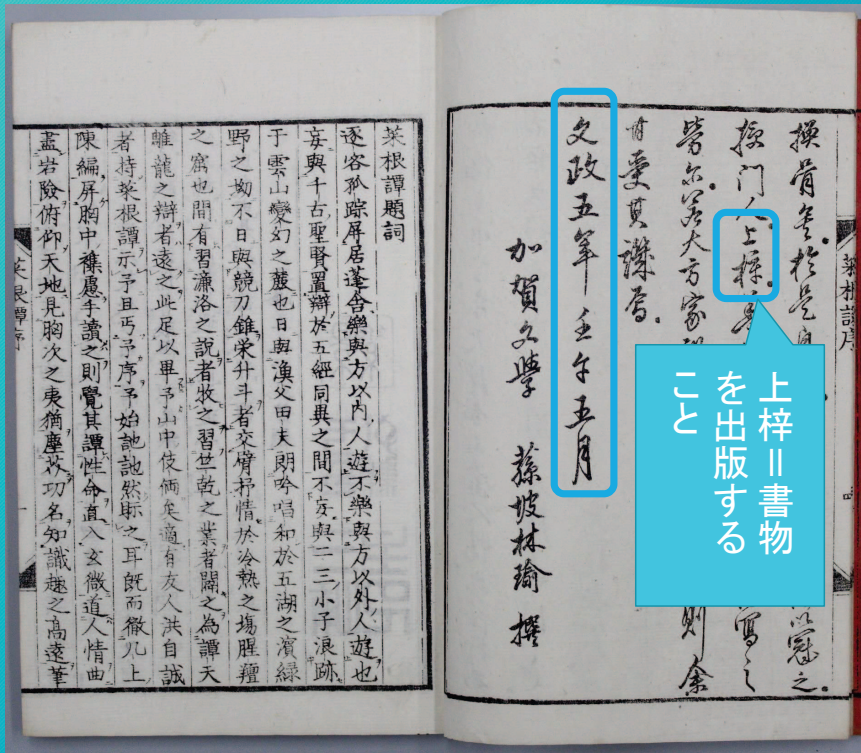 菜根譚序
換骨矣於是 以冠之
授門人上梓 寫之
勞尓若大方家 則余
甘受其譏焉
文政五年壬午五月
加賀文學 蓀坡林瑜 撰
上梓=書物
を出版する
こと
菜根譚題詞
逐客孤踪屏居蓬舍樂與方以内人遊不樂與方以外人遊也
妄與千古聖賢置辯於五經同異之間不妄與二三小子浪跡
于雲山變幻之麓也日與漁父田夫朗吟唱和於五湖之濱綠
野之坳不日與競刀錐榮升斗者交臂抒情於冷熱之場腥羶
之窟也間有習濂洛之說者牧之習竺乾之業者闢之為譚天
雕龍之辯者遠之此足以畢予山中伎倆矣適有友人洪自誠
者持菜根譚示予且丐予序予始訑訑然眎之耳既而徹几上
陳編屏胸中襍慮手讀之則覺其譚性命直入玄微道人情曲
盡岩險俯仰天地見胸次之夷猶塵芥功名知識趣之高遠筆
菜根譚序